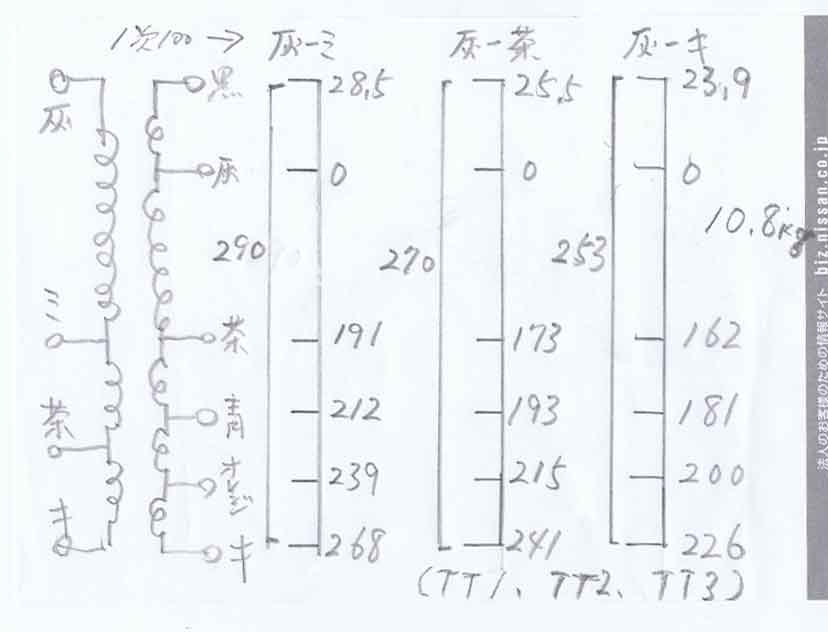 1次100 → 灰-ミ 灰-茶 灰-キ
灰 黒 28,5 25,5 23,9
灰 0 0 0
10.8kg
290 270 253
ミ 茶 191 173 162
茶 青 212 193 181
オレンジ 239 215 200
キ キ 268 241 226
(TT1、TT2、TT3)
法人のお客様のための情報サイト biz.nissan.co.jp